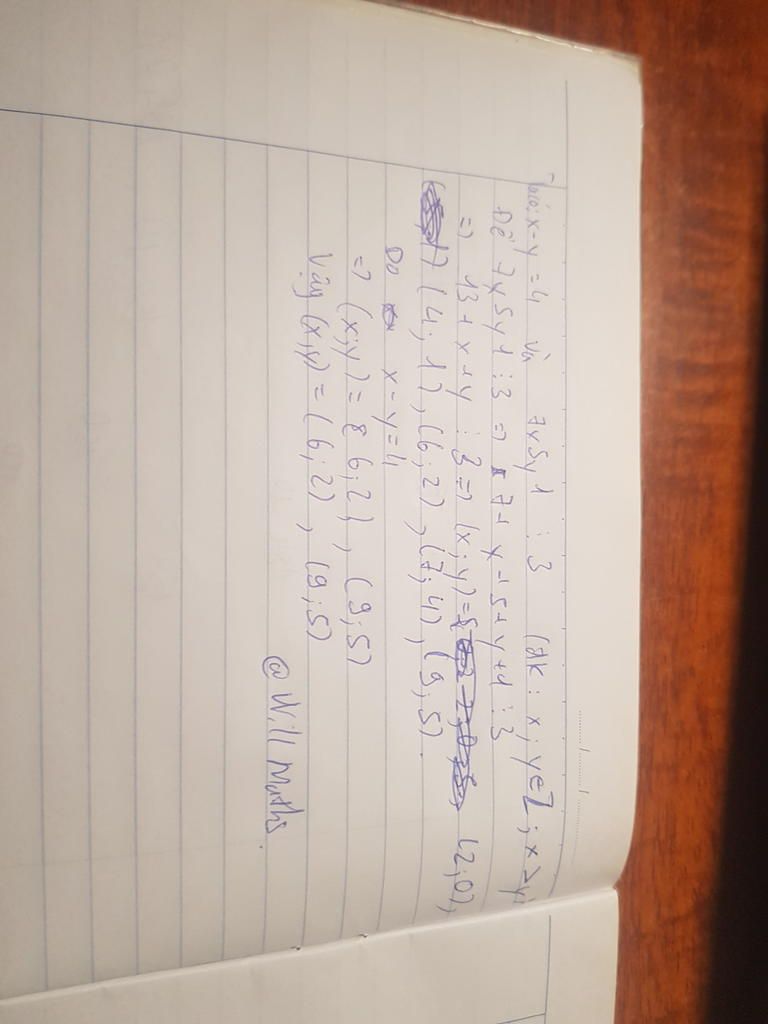 Ta có: x-y=4 và 7x5y1 ⋮ 3 (ĐK: x; y ∈ Z; x>y)
Để 7x5y1 ⋮ 3 => 7+ x +5+y+1 ⋮ 3
=> 13+x+y ⋮ 3 => (x;y)={ (2;0),
(4;1), (6;2), (7;4), (9;5)
Do x-y=4
=> (x;y)={ 6;2), (9;5)
Vậy (x;y) = (6;2), (9;5)
@ Will Maths